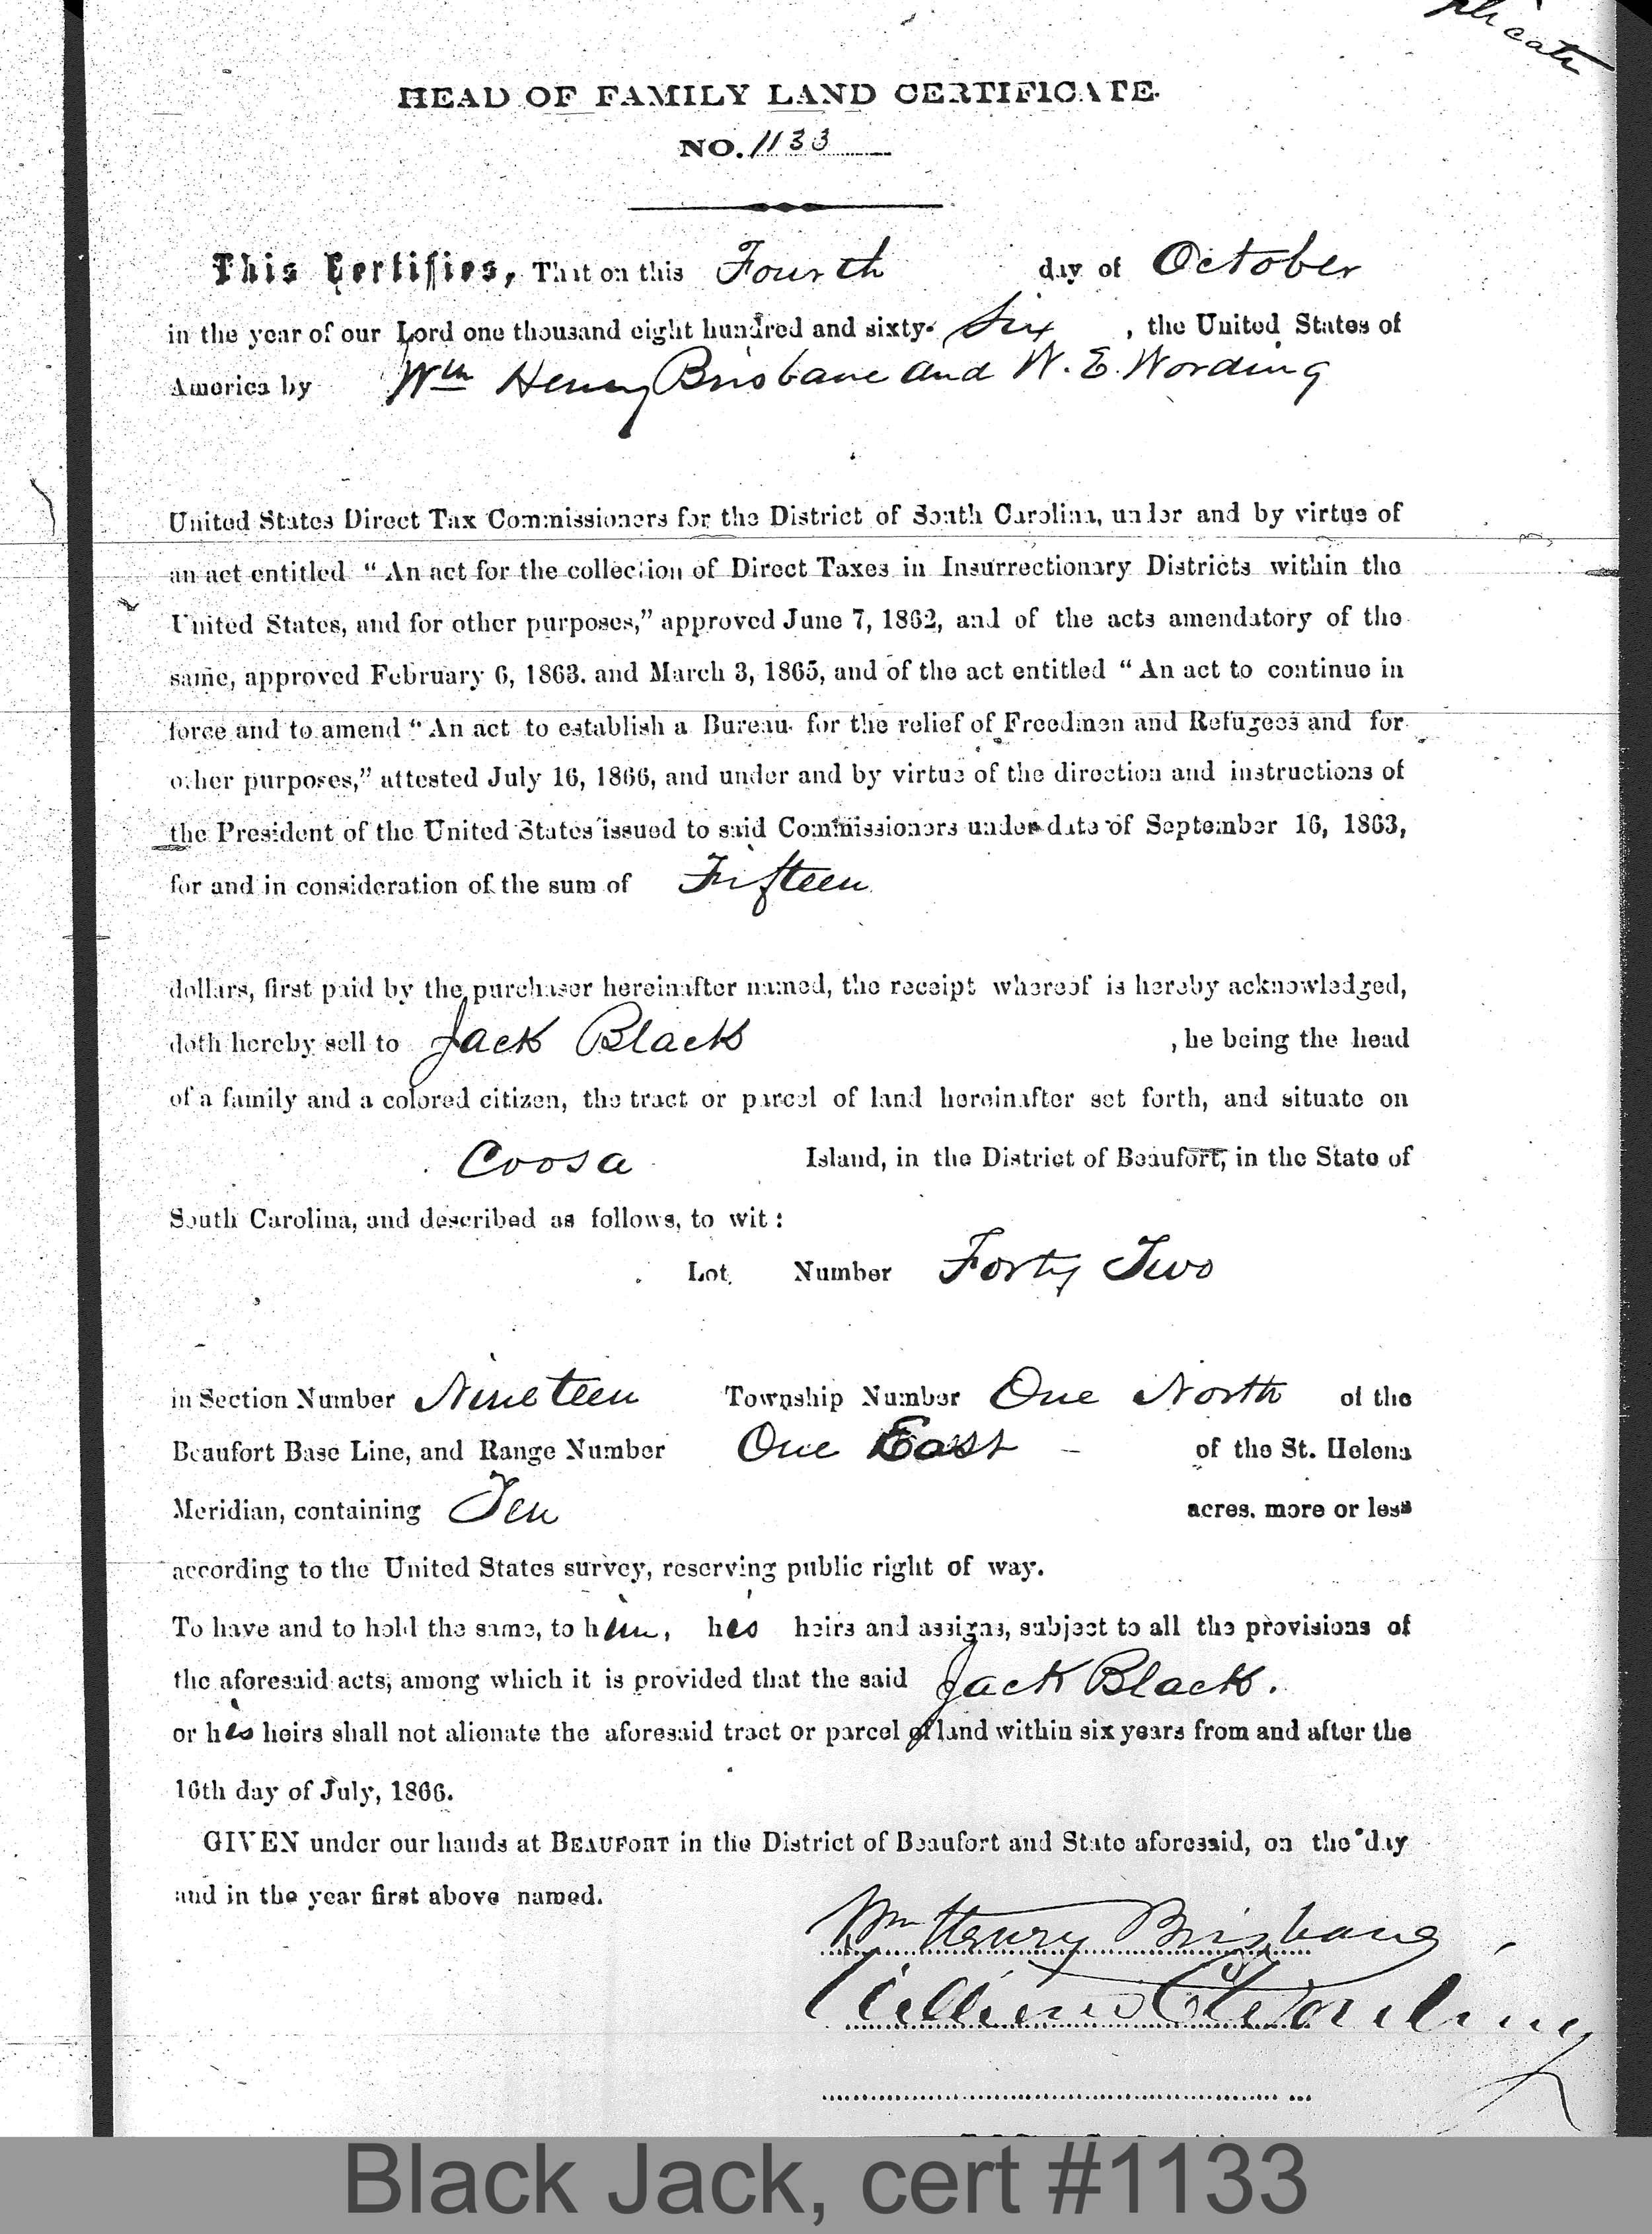 plicate
HEAD OF FAMILY LAND CERTIFICATE.
NO. 1133
This Certifies, That on this Fourth day of October
in the year of our Lord one thousand eight hundred and sixty- Six , the United States of
America by Wm Henry Brisbane and W. E. Wording
United States Direct Tax Commissioners for the District of South Carolina, under and by virtue of
an act entitled “ An act for the collection of Direct Taxes in Insurrectionary Districts within the
United States, and for other purposes,” approved June 7, 1862, and of the acts amendatory of the
same, approved February 6, 1863. and March 3, 1865, and of the act entitled “ An act to continue in
force and to amend “ An act to establish a Bureau for the relief of Freedmen and Refugees and for
other purposes,” attested July 16, 1866, and under and by virtue of the direction and instructions of
the President of the United States issued to said Commissioners under date of September 16, 1863,
for and in consideration of the sum of Fifteen
dollars, first paid by the purchaser hereinafter named, the receipt whereof is hereby acknowledged,
doth hereby sell to Jack Black , he being the head
of a family and a colored citizen, the tract or parcel of land hereinafter set forth, and situate on
Coosa Island, in the District of Beaufort, in the State of
South Carolina, and described as follows, to wit :
Lot Number Forty Two
in Section Number Nineteen Township Number One North of the
Beaufort Base Line, and Range Number One East – of the St. Helena
Meridian, containing Ten acres, more or less
according to the United States survey, reserving public right of way.
To have and to hold the same, to him, his heirs and assigns, subject to all the provisions of
the aforesaid acts, among which it is provided that the said Jack Black.
or his heirs shall not alienate the aforesaid tract or parcel of land within six years from and after the
16th day of July, 1866.
GIVEN under our hands at BEAUFORT in the District of Beaufort and State aforesaid, on the day
and in the year first above named.
Wm Henry Brisbane
William E Wording
Black Jack, cert #1133